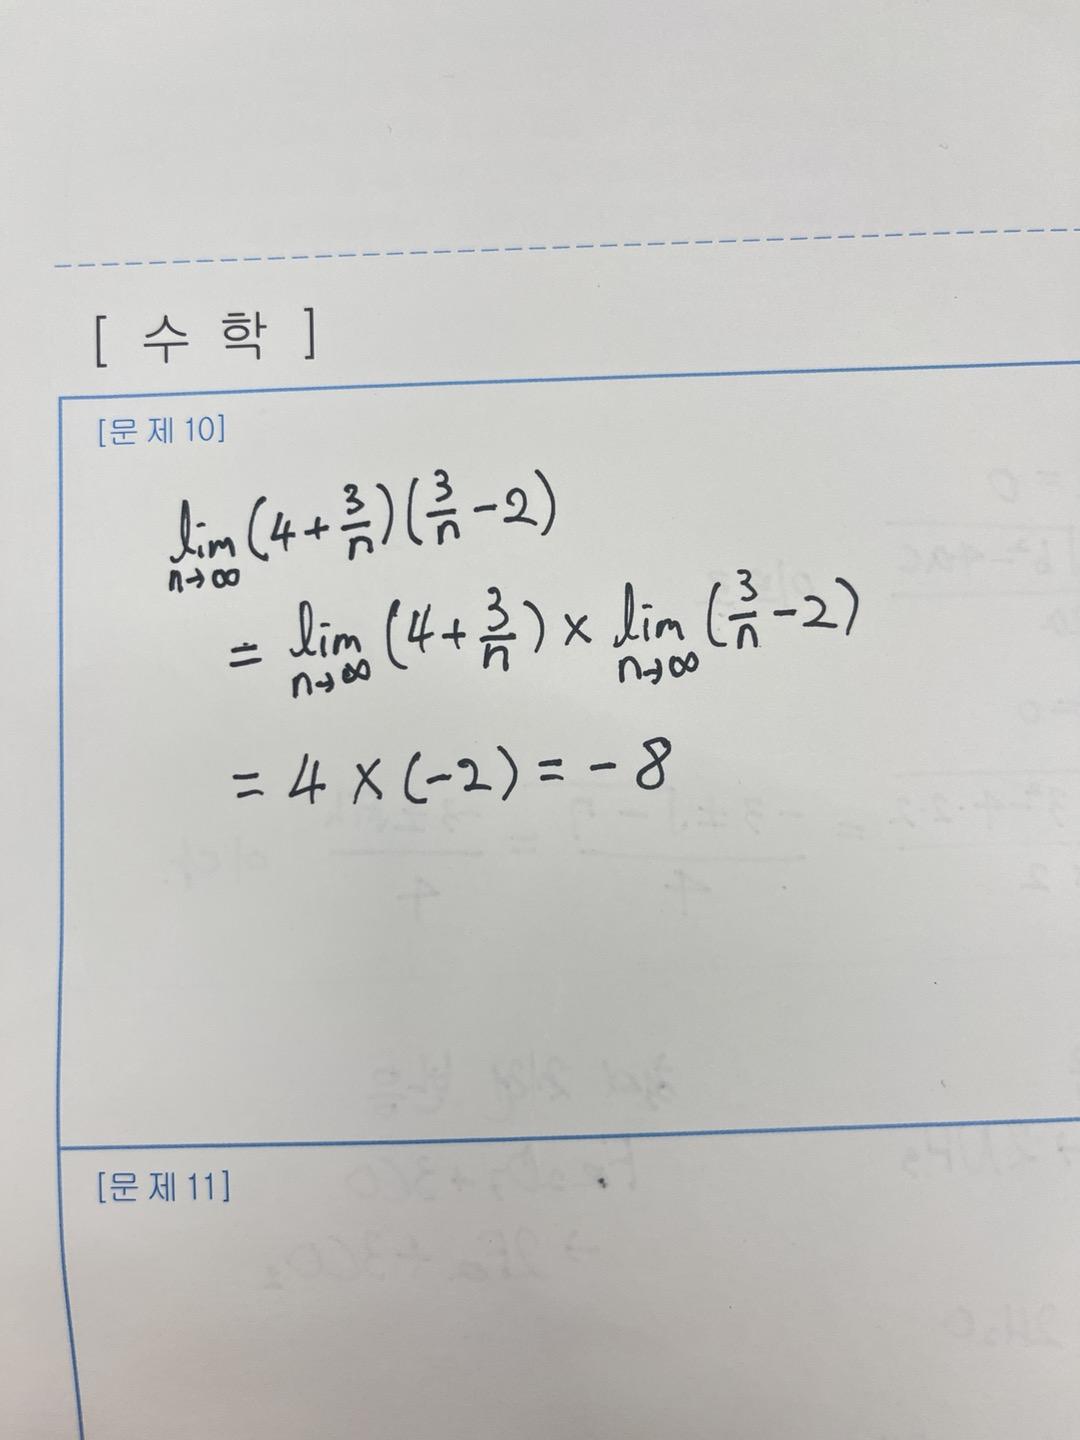 [ 수 학 ]
[문 제 10]
lim (4 + 3/n)(3/n - 2)
n→∞
= lim (4 + 3/n) × lim (3/n - 2)
n→∞ n→∞
= 4 × (-2) = -8
[문 제 11]